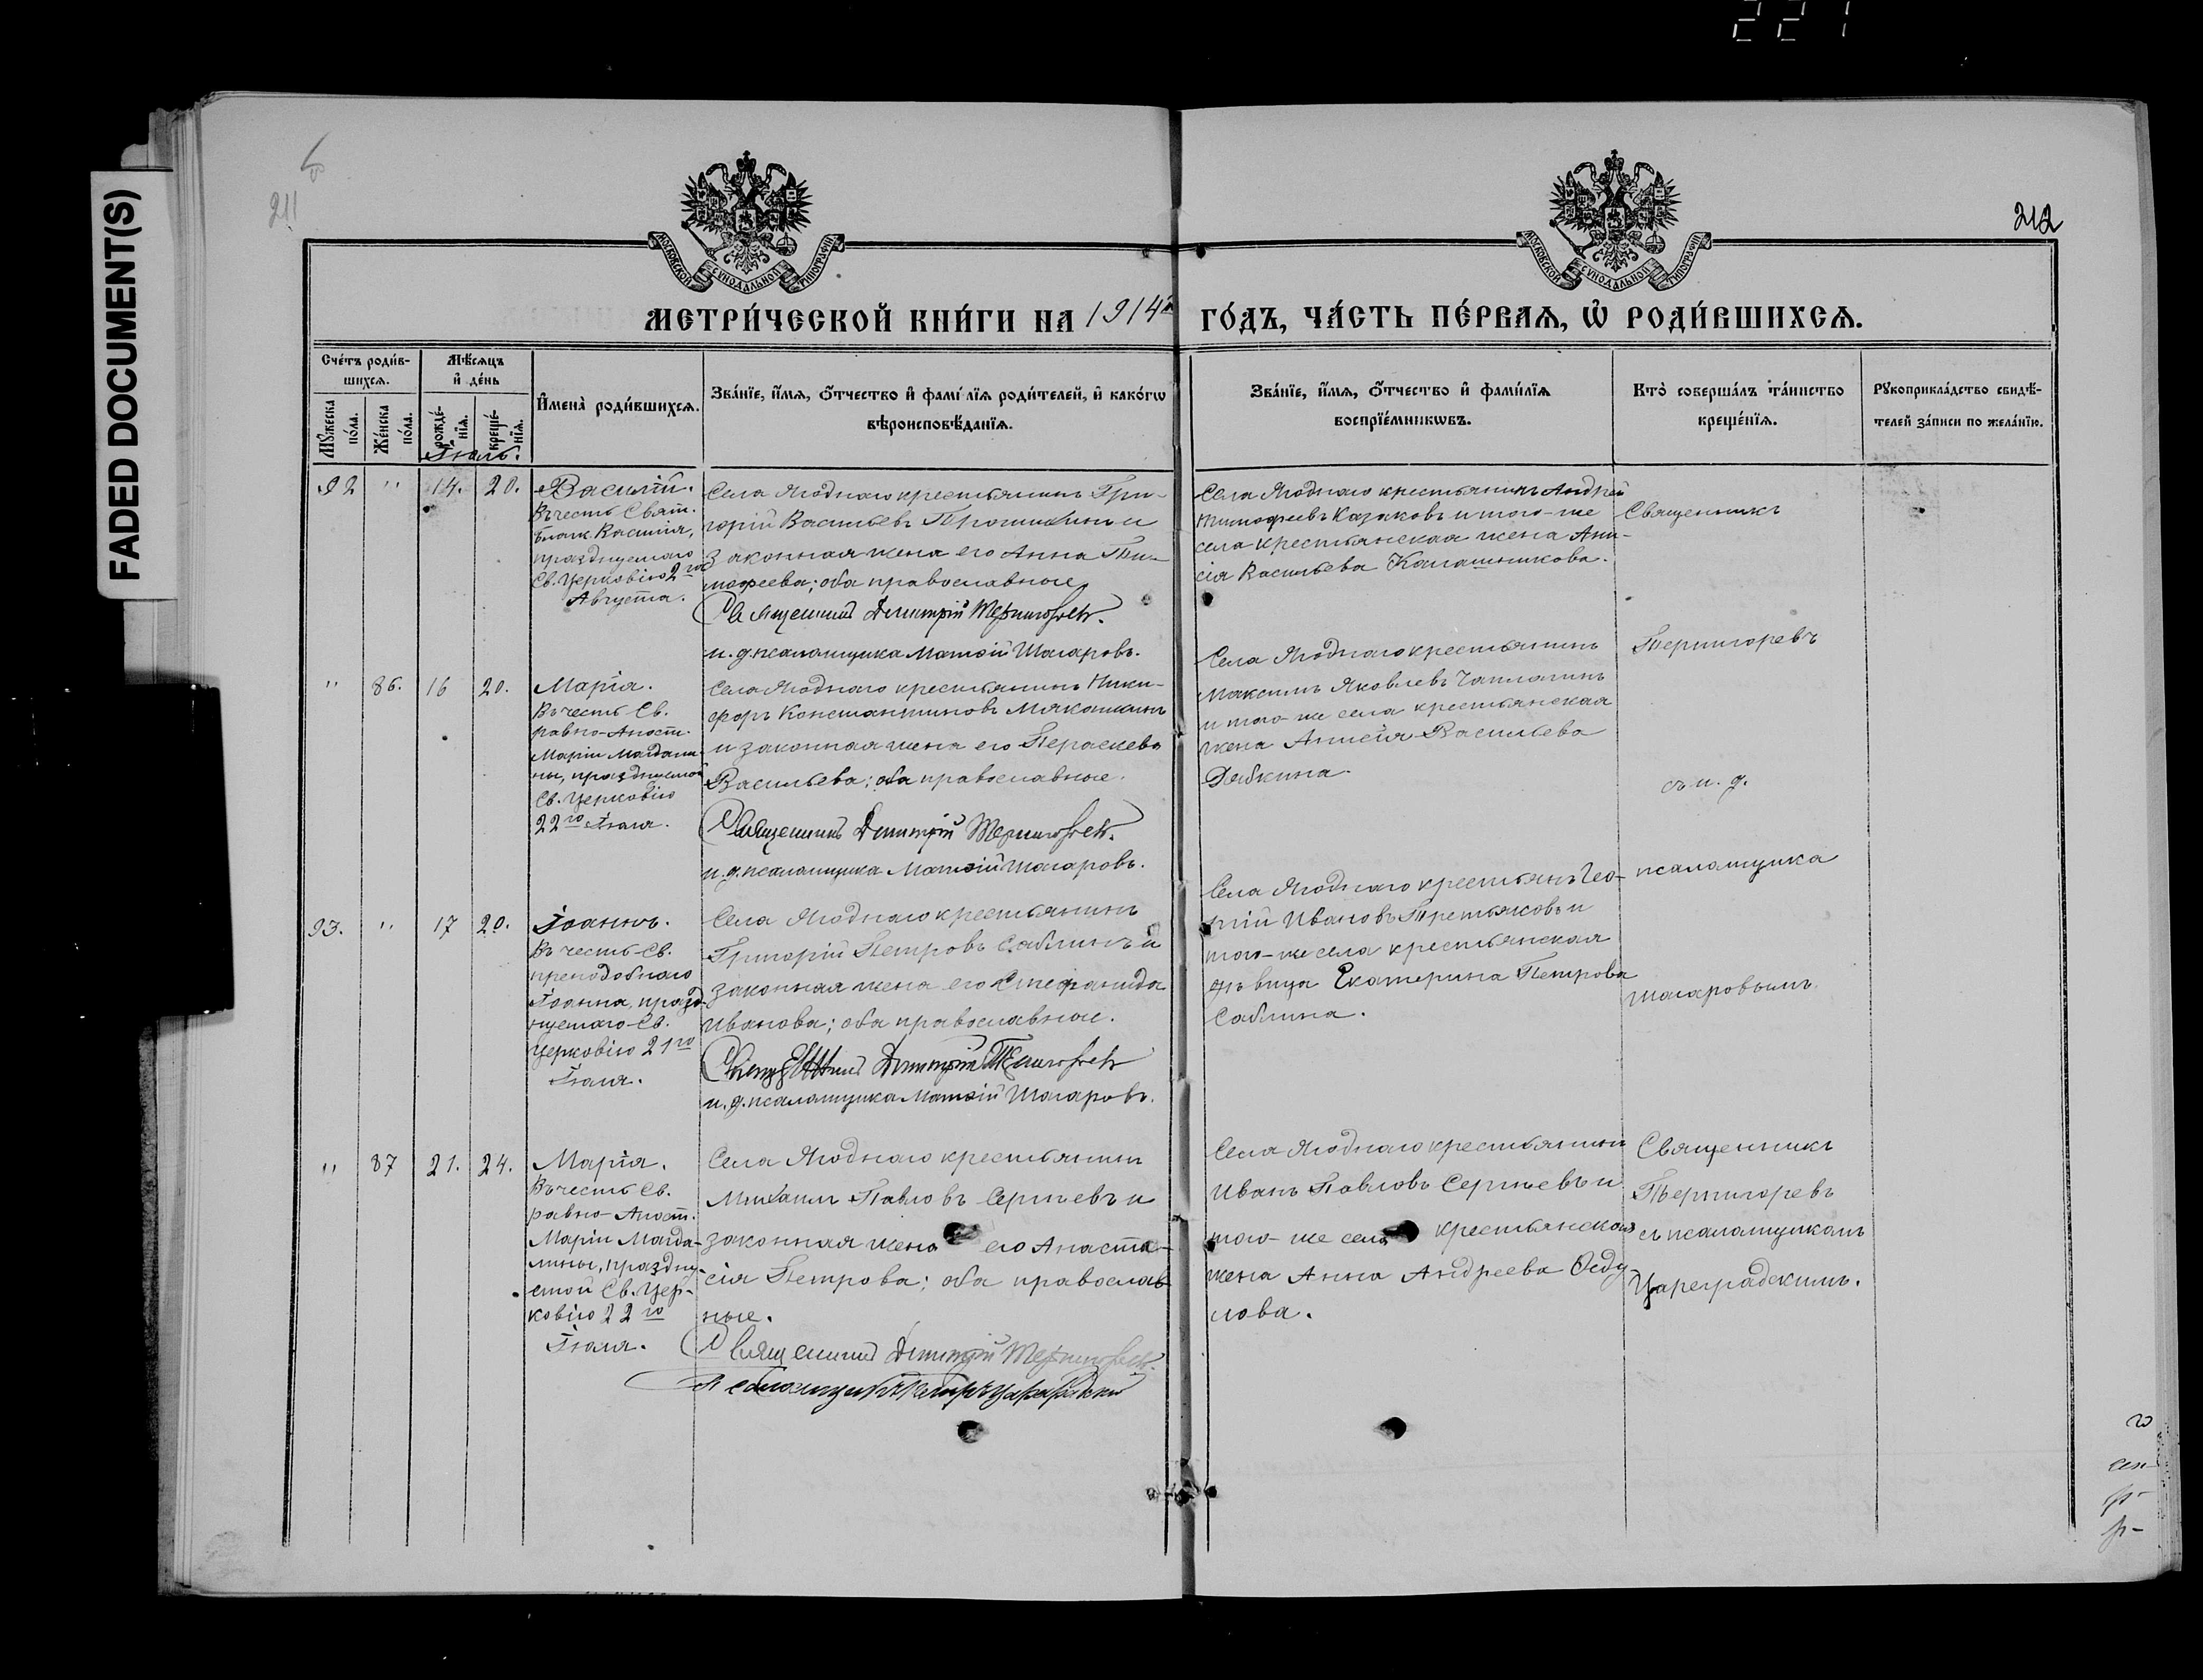 221
FADED DOCUMENT(S)
211
212
МОСКОВСКОЙ СУНОДАЛЬНОЙ ТИПОГРАФІИ
МОСКОВСКОЙ СУНОДАЛЬНОЙ ТИПОГРАФІИ
МЕТРИ́ЧЕСКОЙ КНИ́ГИ НА 1914й ГО́ДЪ, ЧА́СТЬ ПЕ́РВАЯ, Ѡ҆ РОДИ́ВШИХСЯ.
Сче́тъ роди́в-
шихся.
Мꙋ́жеска
по́ла.
Же́нска
по́ла.
Мѣ́сяцъ
и҆ де́нь
рожде́-
нїя.
креще́-
нїя.
Іюль.
И҆мена̀ роди́вшихся.
Зва́нїе, и҆́мя, ѻ҆́тчество и҆ фамі́лїя роди́телей, и҆ како́гѡ
вѣроисповѣ́данїя.
Зва́нїе, и҆́мя, ѻ҆́тчество и҆ фами́лїя
воспрїе́мникѡвъ.
Кто̀ соверша́лъ та́инство
креще́нїя.
Рꙋкоприкла́дство свидѣ́-
телей за́писи по жела́нїю.
92 " 14. 20. Василій.
Въ честь Свят.
блаж. Василія,
празднуемаго
Св. Церковію 2го
Августа.
Села Ягоднаго крестьянинъ Гри-
горій Васильевъ и
законная жена его Анна Ти-
мофеева; оба православные
Священникъ Димитрій Терпигоревъ.
и. д. псаломщика Матѳій Шагаровъ.
Села Ягоднаго крестьянинъ Андрей
Тимофеевъ Казаковъ и того-же
села крестьянская жена Ани-
сія Васильева Калашникова.
Священникъ
" 86. 16 20. Марія.
Въ честь Св.
равно-Апост.
Маріи Магдали-
ны, празднуемой
Св. Церковію
22го Іюля.
Села Ягоднаго крестьянинъ Ники-
форъ Константиновъ Мякошинъ
и законная жена его Параскева
Васильева; оба православные.
Священникъ Димитрій Терпигоревъ.
и. д. псаломщика Матѳій Шагаровъ.
Села Ягоднаго крестьянинъ
Максимъ Яковлевъ Чаплагинъ
и того-же села крестьянская
жена Анисія Васильева
Дябкина.
Терпигоревъ
съ и. д.
93. " 17 20. Іоаннъ.
Въ честь Св.
преподобнаго
Іоанна, празд-
нуемаго Св.
Церковію 21го
Іюля.
Села Ягоднаго крестьянинъ
Григорій Петровъ Саблинъ и
законная жена его Стефанида
Иванова; оба православные.
Священникъ Димитрій Терпигоревъ
и. д. псаломщика Матѳій Шагаровъ.
Села Ягоднаго крестьянъ Гео-
ргій Ивановъ Третьяковъ и
того-же села крестьянская
дѣвица Екатерина Петрова
Саблина.
псаломщика
Шагаровымъ
" 87 21. 24. Марія.
Въ честь Св.
равно-Апост.
Маріи Магда-
лины, праздну-
емой Св. Цер-
ковію 22го
Іюля.
Села Ягоднаго крестьянинъ
Михаилъ Павловъ Сергѣевъ и
законная жена его Анаста-
сія Петрова; оба православ-
ные.
Священникъ Димитрій Терпигоревъ.
Псаломщикъ Петръ Цареградскій
Села Ягоднаго крестьянинъ
Иванъ Павловъ Сергѣевъ и
того-же села крестьянская
жена Анна Андреева Оеду-
лова.
Священникъ
Терпигоревъ
съ псаломщикомъ
Цареградскимъ.